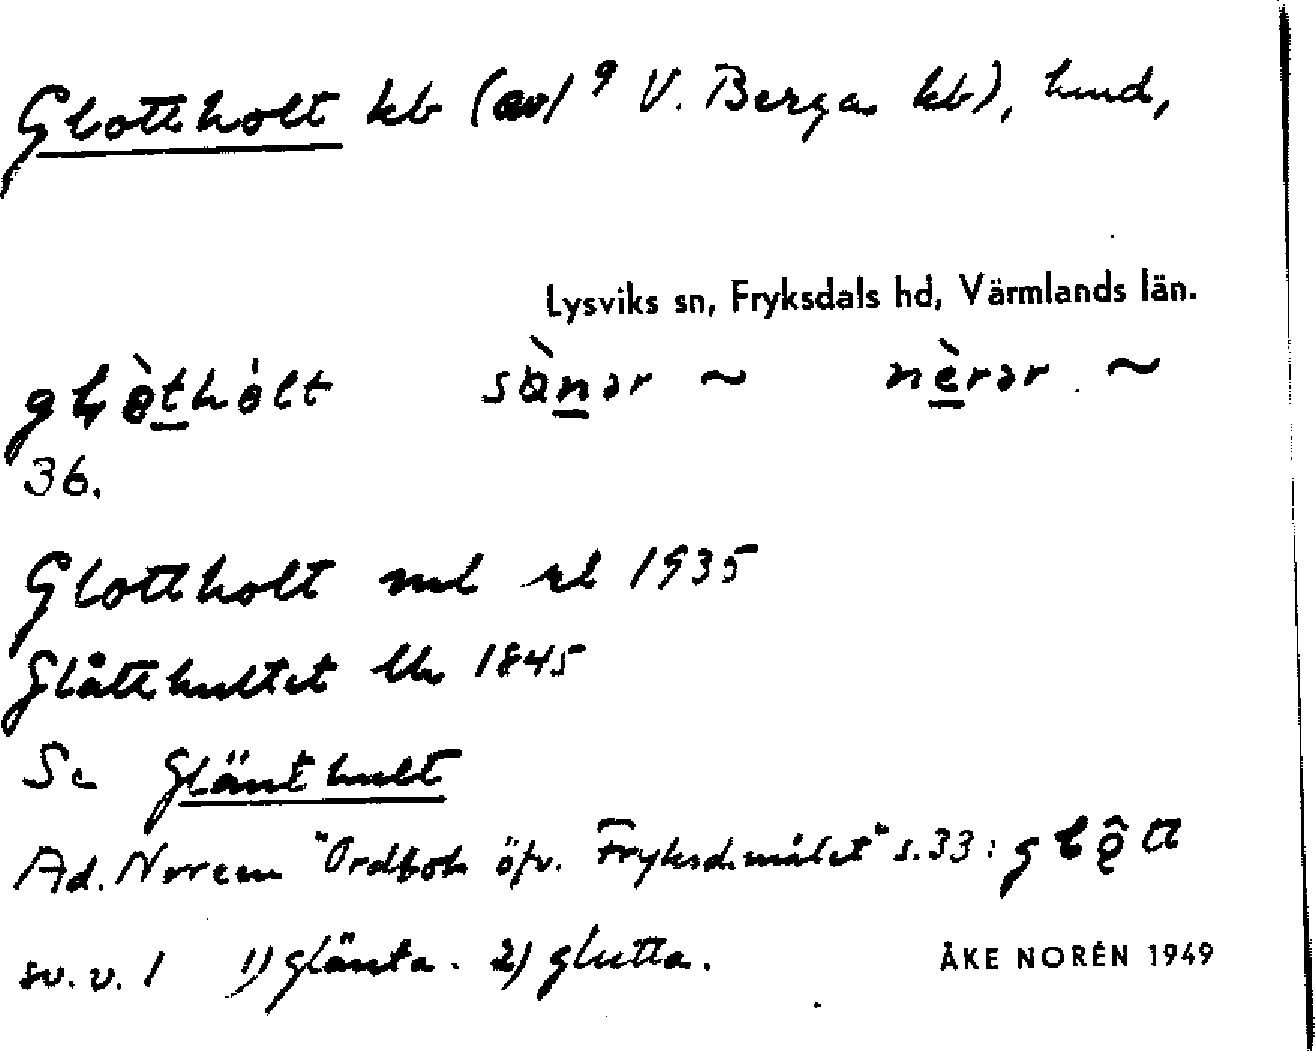 Glottholt kb (av l 9 V. Berga kb), hmd,
Lysviks sn, Fryksdals hd, Värmlands län.
glòthòlt sònər ~ nèrər ~
36.
Glottholt ml rl 1935
Glåtthultet Uh 1845
Se Glänthult
Ad. Noreen "Ordbok öfv. Fryksd.målet" s.33: glô̧tt
sv.v. 1 1) glänta. 2) glutta.
ÅKE NORÉN 1949